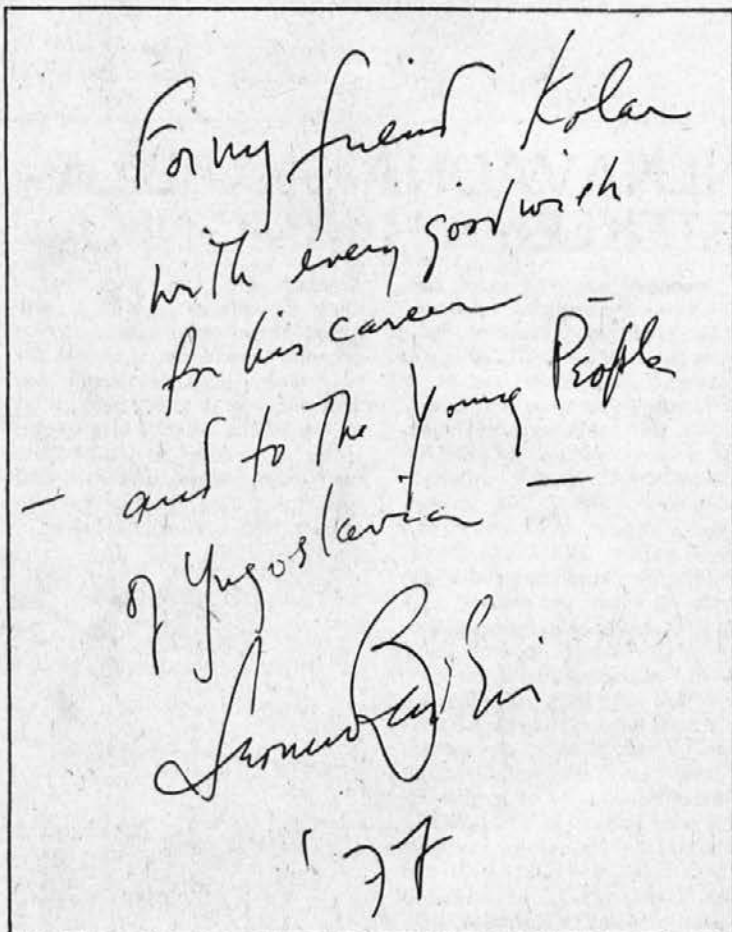 For my friend Kolar
with every good wish
for his career
— and to the Young People —
of Yugoslavia
Leonard Bernstein
'77